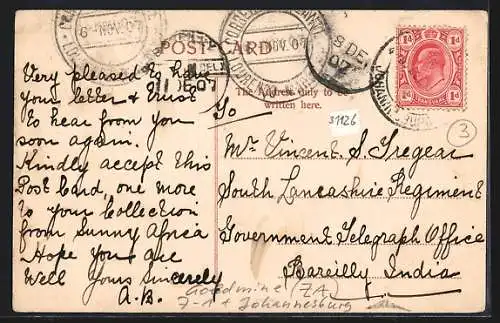 POST CARD
The Address only to be
written here.
6-NOV.07
8 DE
07
1d 1d
31126
3
Very pleased to have
your letter & trust
to hear from you
soon again.
Kindly accept this
Post Card, one more
to your Collection
from Sunny Africa
Hope you are
Well Yours Sincerely
A.B.
To
Mr Vincent. S. Tregear
South Lancashire Regiment
Government Telegraph Office
Bareilly India
Goldmine (ZA)
Johannesburg